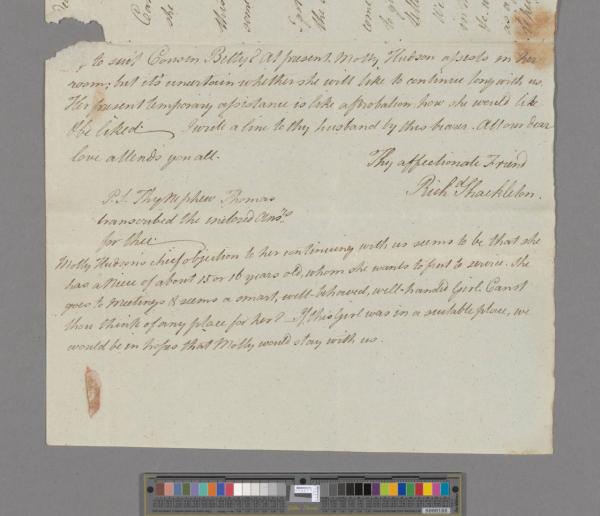 to suit Cousin Betty? At present Molly Hudson assists in her
room; but it's uncertain whether she will like to continue long with us.
Her present temporary assistance is like a probation, how she would like
& be liked. I write a line to thy husband by this bearer. All our dear
love attends you all.
Thy affectionate Friend
Richd Shackleton.
P.S. Thy Nephew Thomas
transcribed the inclosed
for thee
Molly Hudson's chief objection to her continuing with us seems to be that she
has a Niece of about 15 or 16 years old, whom she wants to put to service. She
goes to Meetings & seems a smart, well-behaved, well-handed Girl. Canst
thou think of any place for her? If this Girl was in a suitable place, we
would be in hopes that Molly would stay with us.